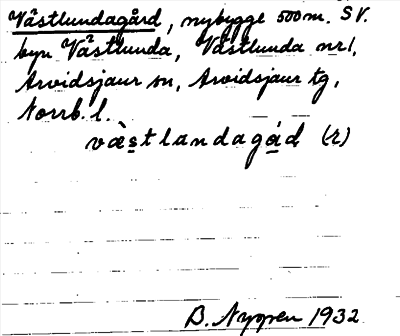 Västlundagård, nybygge 500 m. SV.
byn Västlunda, Västlunda nr 1,
Arvidsjaur sn, Arvidsjaur tg,
Norrb. l.
væ̀stlandagá̱d (r)
B. Nyggren 1932